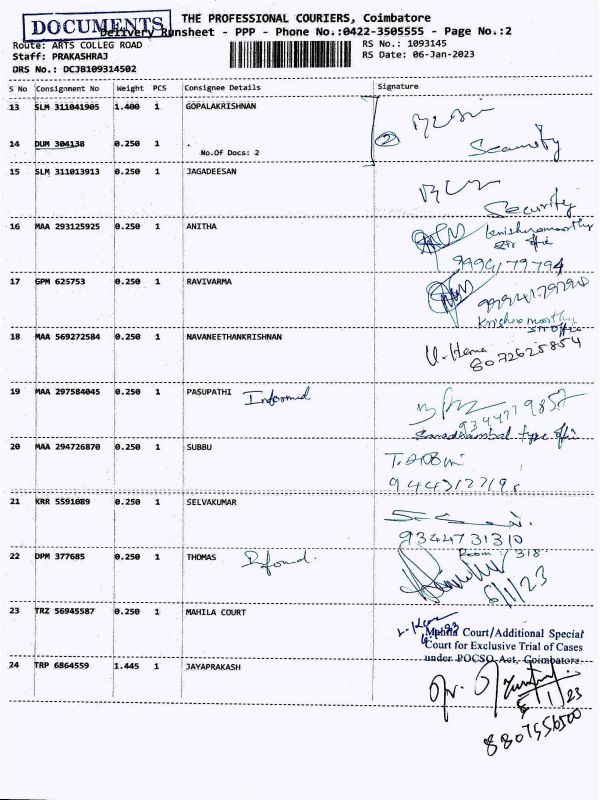 DOCUMENTS
THE PROFESSIONAL COURIERS, Coimbatore
Delivery Runsheet - PPP - Phone No.:0422-3505555 - Page No.:2
Route: ARTS COLLEG ROAD
RS No.: 1093145
Staff: PRAKASHRAJ
RS Date: 06-Jan-2023
DRS No.: DCJB109314502
S No Consignment No Weight PCS Consignee Details Signature
13 SLM 311041905 1.400 1 GOPALAKRISHNAN
14 DUM 304138 0.250 1 .
No.Of Docs: 2
2
Security
15 SLM 311013913 0.250 1 JAGADEESAN
Security
16 MAA 293125925 0.250 1 ANITHA
9994179794
17 GPM 625753 0.250 1 RAVIVARMA
18 MAA 569272584 0.250 1 NAVANEETHANKRISHNAN
U. Hema
8072625854
19 MAA 297584045 0.250 1 PASUPATHI Informed
type
20 MAA 294726870 0.250 1 SUBBU
21 KRR 5591089 0.250 1 SELVAKUMAR
9344731310
22 DPM 377685 0.250 1 THOMAS
Room: 318
6/1/23
23 TRZ 56945587 0.250 1 MAHILA COURT
Mahila Court/Additional Special
Court for Exclusive Trial of Cases
under POCSO Act, Coimbatore
24 TRP 6864559 1.445 1 JAYAPRAKASH
8807556500